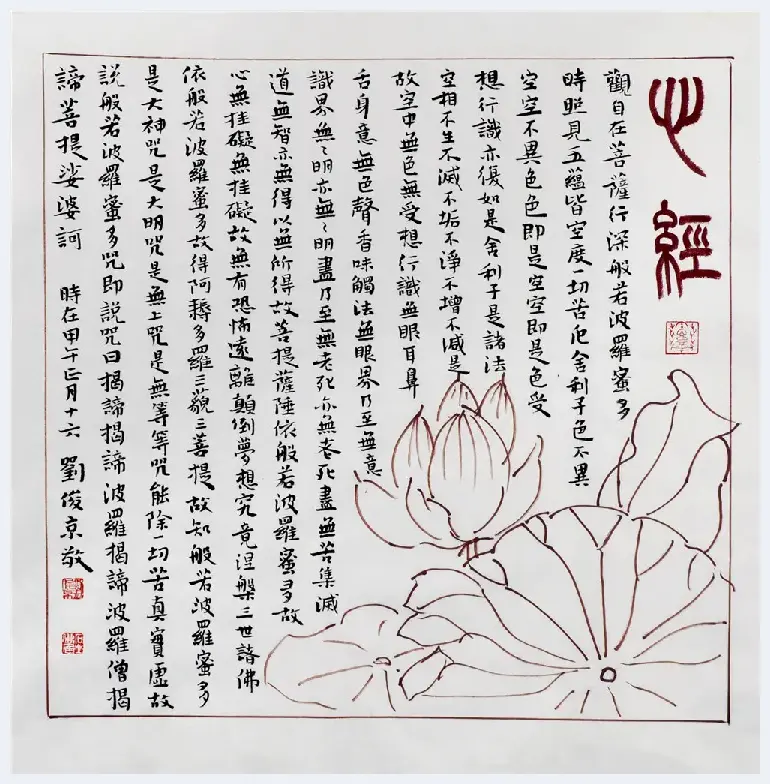 心經
觀自在菩薩行深般若波羅蜜多
時照見五蘊皆空度一切苦厄舍利子色不異
空空不異色色即是空空即是色受
想行識亦復如是舍利子是諸法
空相不生不滅不垢不淨不增不減是
故空中無色無受想行識無眼耳鼻
舌身意無色聲香味觸法無眼界乃至無意
識界無〻明亦無〻明盡乃至無老死亦無老死盡無苦集滅
道無智亦無得以無所得故菩提薩埵依般若波羅蜜多故
心無挂礙無挂礙故無有恐怖遠離顛倒夢想究竟涅槃三世諸佛
依般若波羅蜜多故得阿耨多羅三藐三菩提故知般若波羅蜜多
是大神咒是大明咒是無上咒是無等等咒能除一切苦真實虛故
說般若波羅蜜多咒即說咒曰揭諦揭諦波羅揭諦波羅僧揭
諦菩提娑婆訶 時在甲午正月十六 劉俊京敬